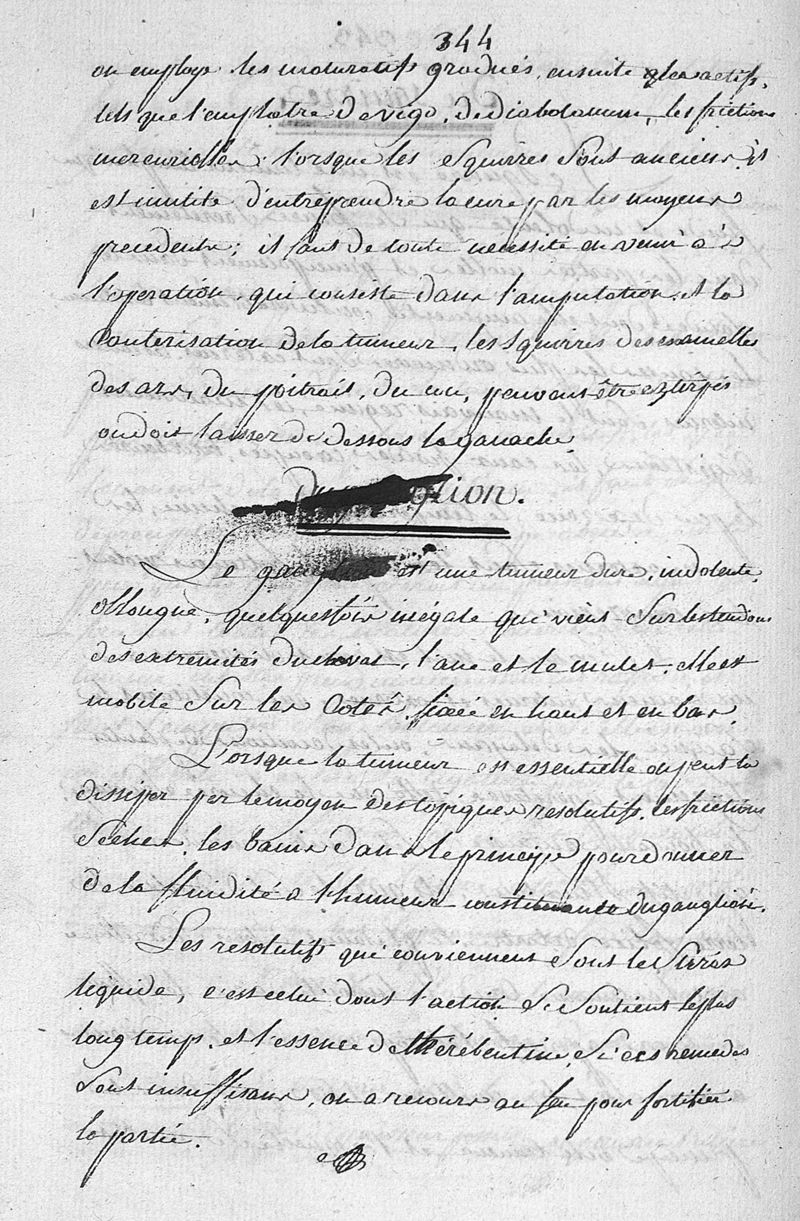 344
on employe les maturatifs gradués, ensuite plus actifs,
tels que l'emplatre de vigo, de diabotanum, les frictions
mercurielles; lorsque les squirres sont anciens, il
est inutile d'entreprendre la cure par les moyens
precedents; il faut de toute necessité en venir à
l'operation, qui consiste dans l'amputation et la
Cauterisation de la tumeur, les squirres des mamelles
des ars, du poitrail, du cou, peuvent être extirpés
on doit laisser de dessous la ganache.
Du
Le est une tumeur dure, indolente,
oblongue, quelquesfois inégale qui vient sur les tendons
des extremités du cheval, l'ane et le mulet, elle est
mobile sur les Cotés, fixée en haut et en bas.
Lorsque la tumeur est essentielle on peut la
dissiper par le moyen des topiques resolutifs, les frictions
seches, les bains dans le principe pour donner
de la fluidité a l'humeur constituante du ganglion.
Les resolutifs qui conviennent sont le
liquide, c'est celui dont l'action se soutient le plus
long temps, et l'essence de thérébentine, Si ces remedes
sont insuffisans, on a recours au feu pour fortifier
la partie.